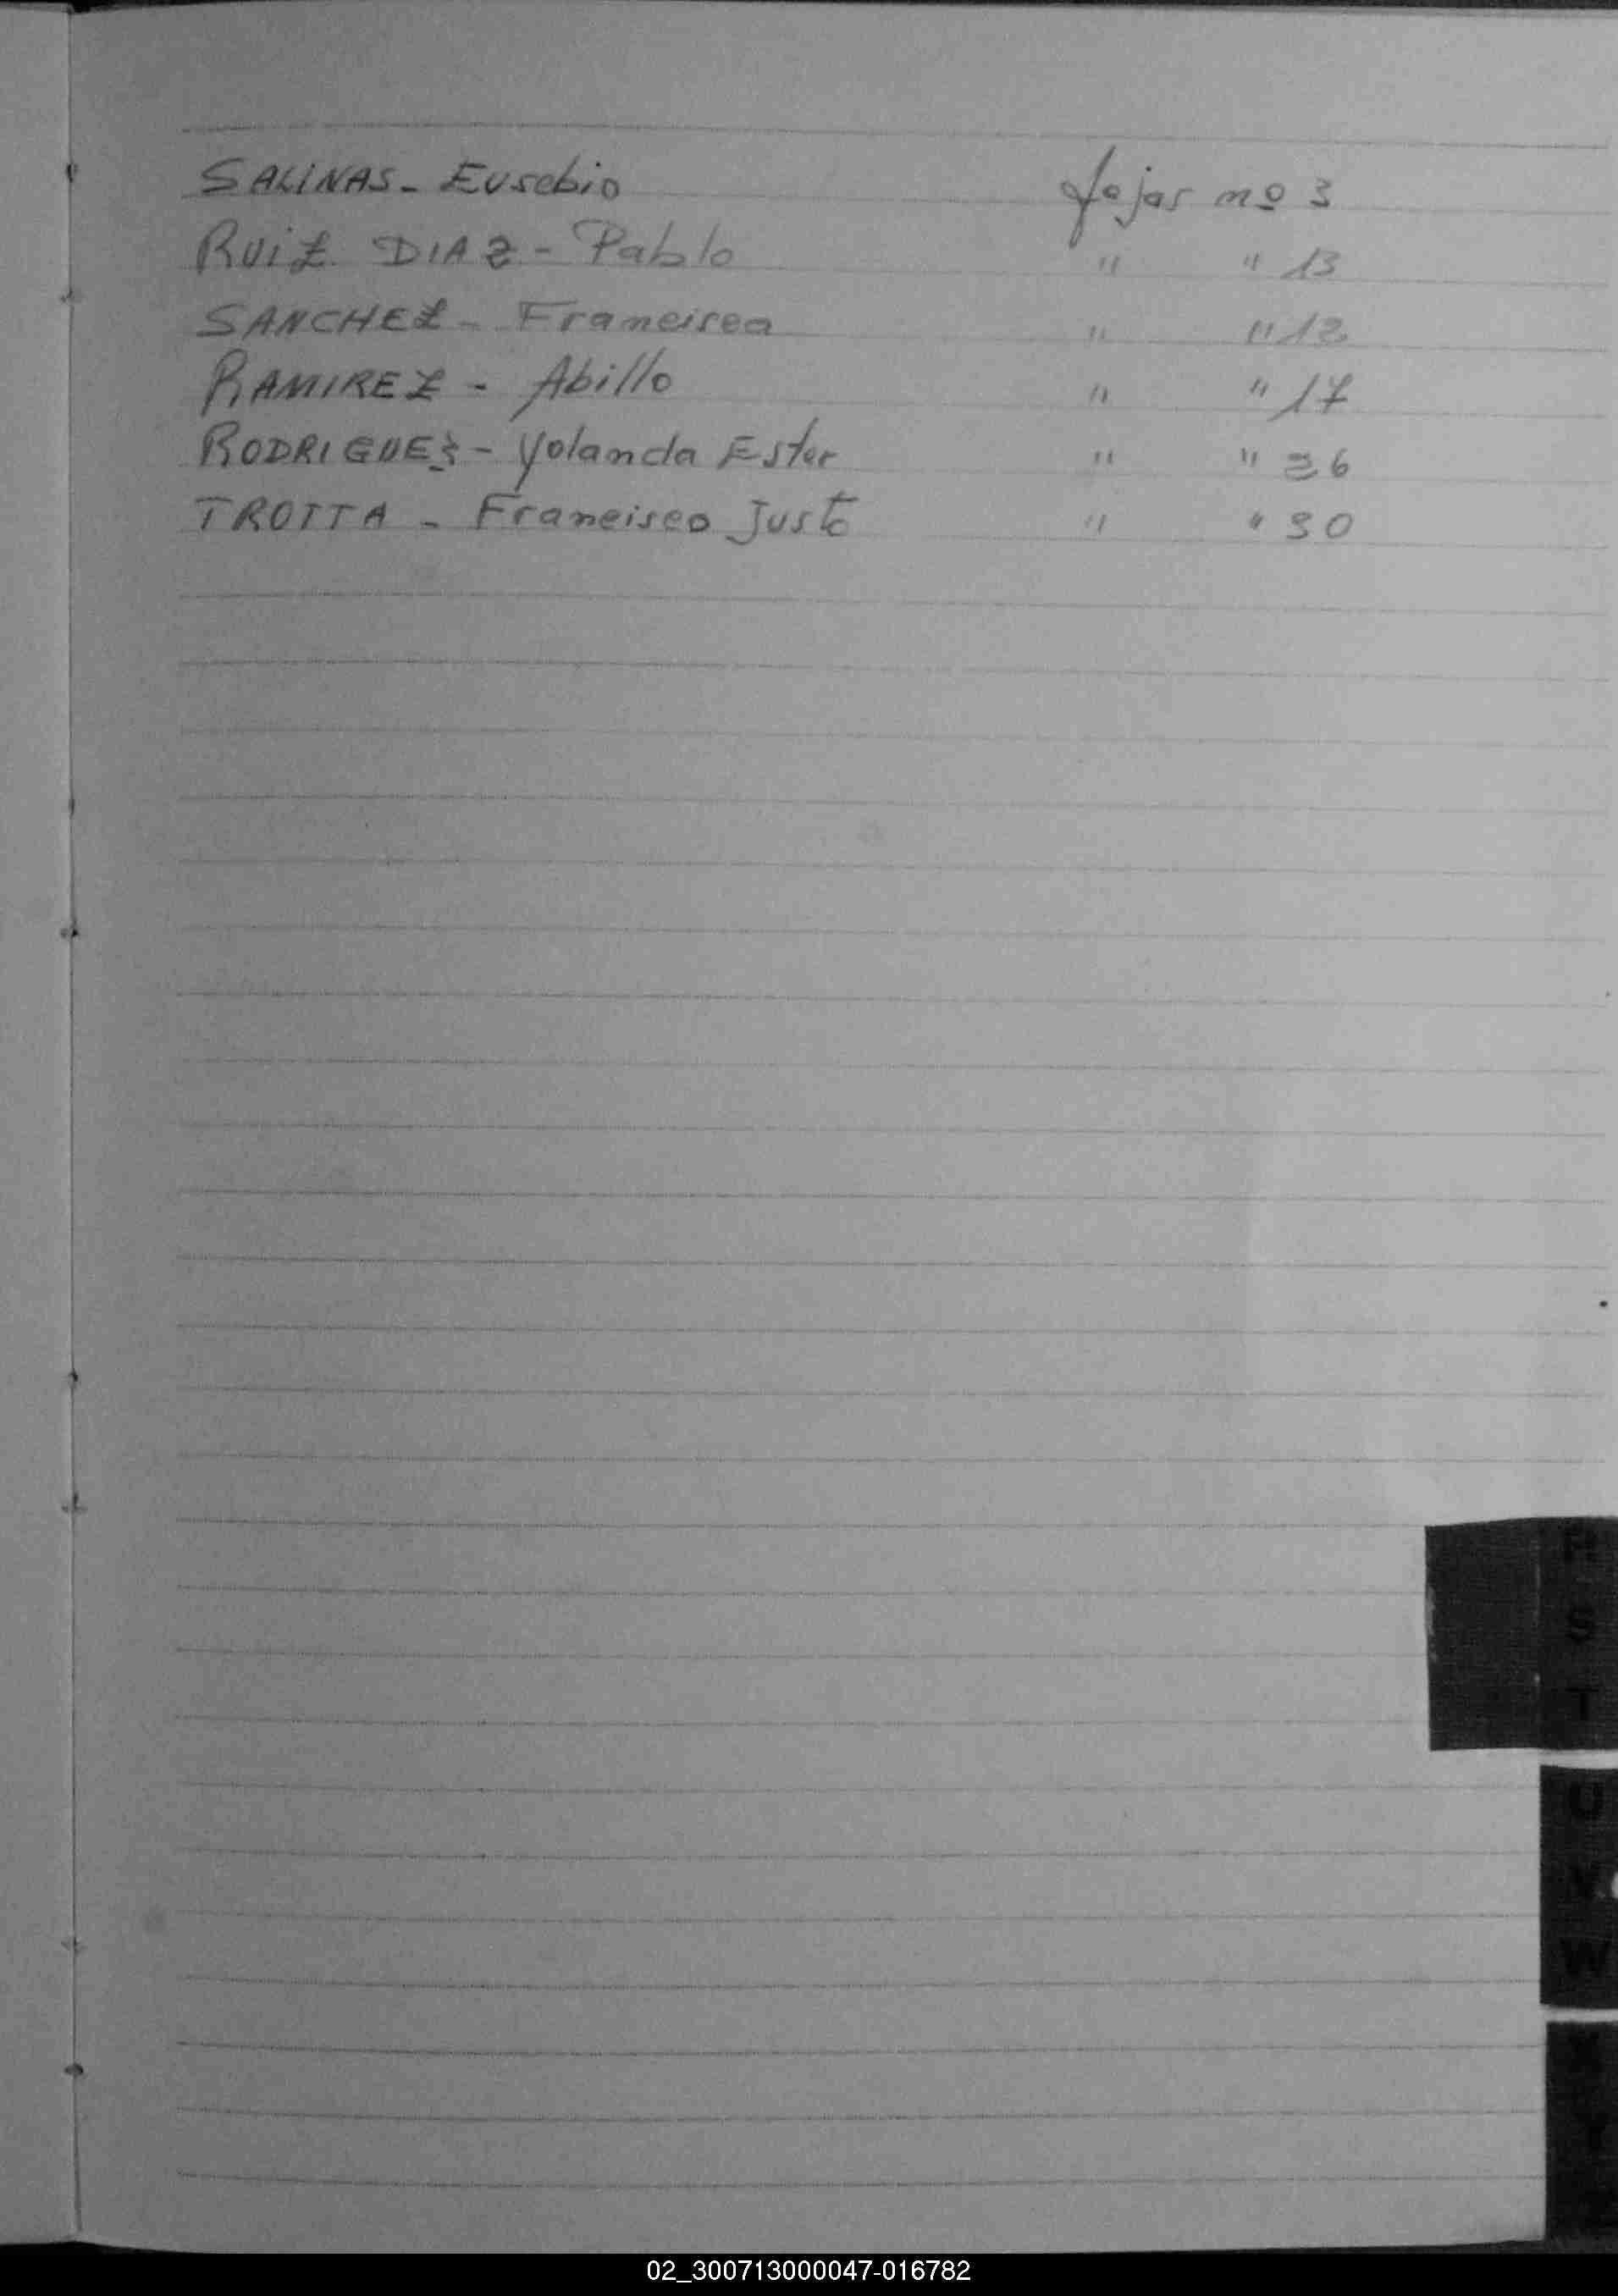 SALINAS - Eusebio fojas nº 3
RUIZ DIAZ - Pablo " " 13
SANCHEZ - Francisca " " 12
RAMIREZ - Abillo " " 17
RODRIGUEZ - Yolanda Ester " " 36
TROTTA - Francisco Justo " " 30
R
S
T
U
V
W
02_300713000047-016782